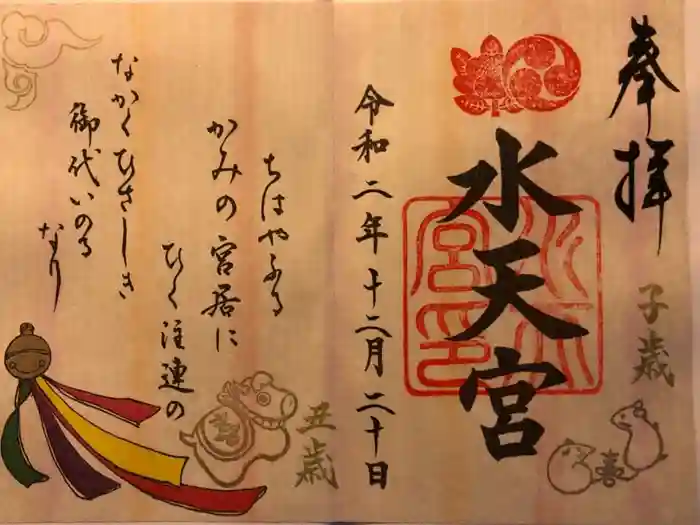 奉拝
子歳
喜
水天宮
令和二年十二月二十日
ちはやふる
かみの宮居に
ひく注連の
なかくひさしき
御代いのる
なり
丑歳